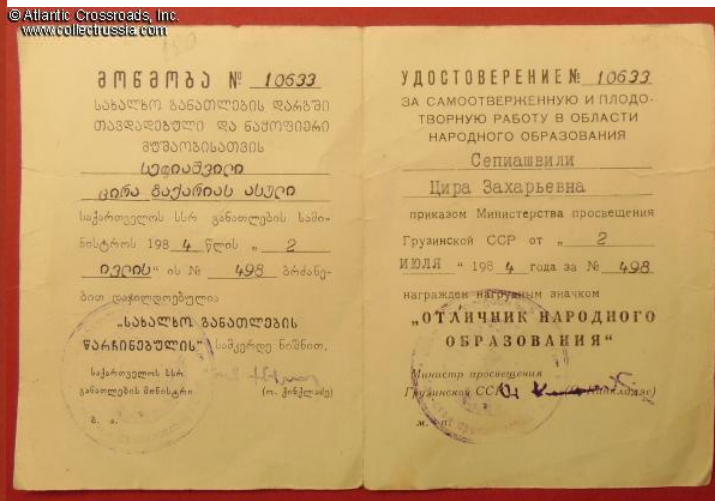 © Atlantic Crossroads, Inc.
www.collectrussia.com
მოწმობა № 10633
სახალხო განათლების დარგში
თავდადებული და ნაყოფიერი
მუშაობისათვის
სეფიაშვილი
ცირა ზაქარიას ასული
საქართველოს სსრ განათლების სამი-
ნისტროს 1984 წლის „ 2
ივლის“ ის № 498 ბრძანე-
ბით დაჯილდოებულია
„სახალხო განათლების
წარჩინებულის“ სამკერდე ნიშნით.
საქართველოს სსრ
განათლების მინისტრი (ო. ქინქლაძე)
ბ. ა.
УДОСТОВЕРЕНИЕ № 10633
ЗА САМООТВЕРЖЕННУЮ И ПЛОДО-
ТВОРНУЮ РАБОТУ В ОБЛАСТИ
НАРОДНОГО ОБРАЗОВАНИЯ
Сепиашвили
Цира Захарьевна
приказом Министерства просвещения
Грузинской ССР от „ 2
ИЮЛЯ “ 1984 года за № 498
награжден нагрудным значком
„ОТЛИЧНИК НАРОДНОГО
ОБРАЗОВАНИЯ“
Министр просвещения
Грузинской ССР
м. п.